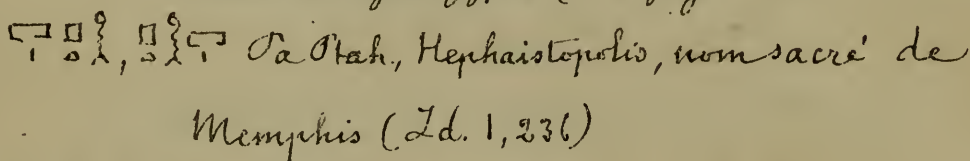 𓉐𓏤 𓊪𓏏𓎛, 𓊪𓏏𓎛𓉐𓏤 Pa Ptah, Hephaistopolis, nom sacré de
Memphis (Id. 1, 236)